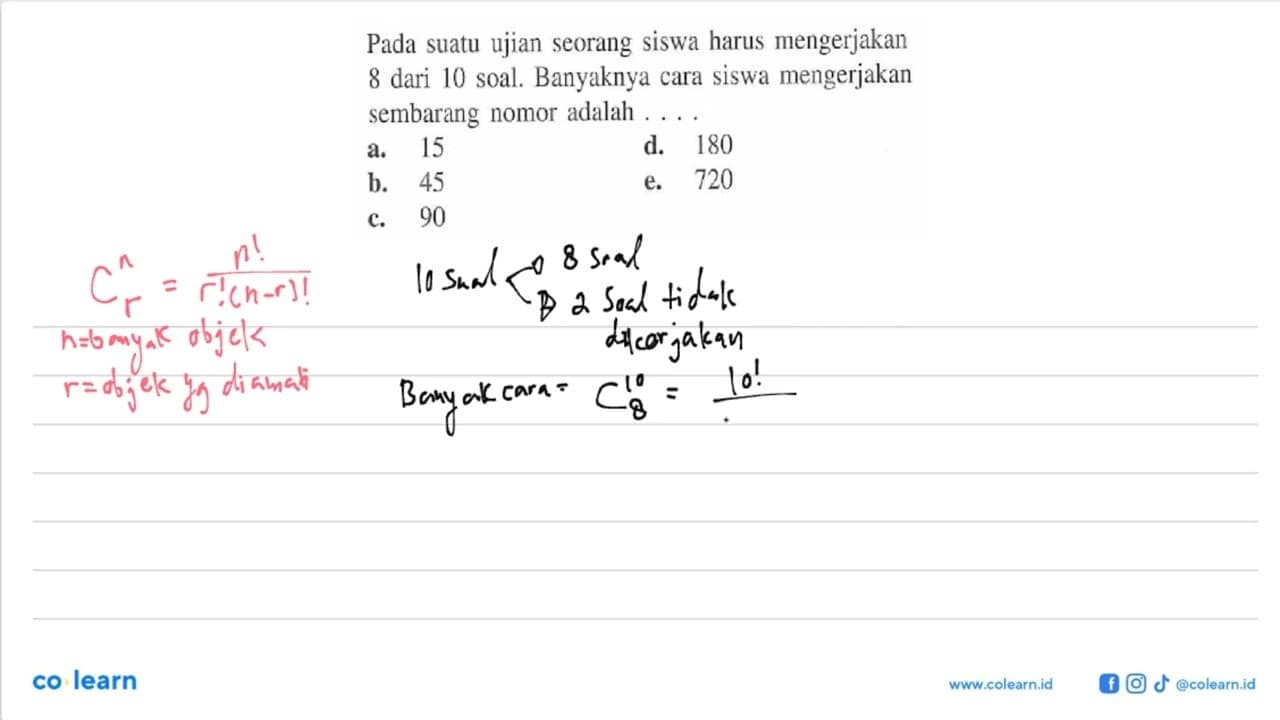 Pada suatu ujian seorang siswa harus mengerjakan
8 dari 10 soal. Banyaknya cara siswa mengerjakan
sembarang nomor adalah . . . .
a. 15 d. 180
b. 45 e. 720
c. 90
C^n_r = n! / r!(n-r)!
n=banyak objek
r=objek yg diamati
10 soal 8 soal
2 soal tidak
dikerjakan
Banyak cara = C^10_8 = 10!
co learn
www.colearn.id @colearn.id